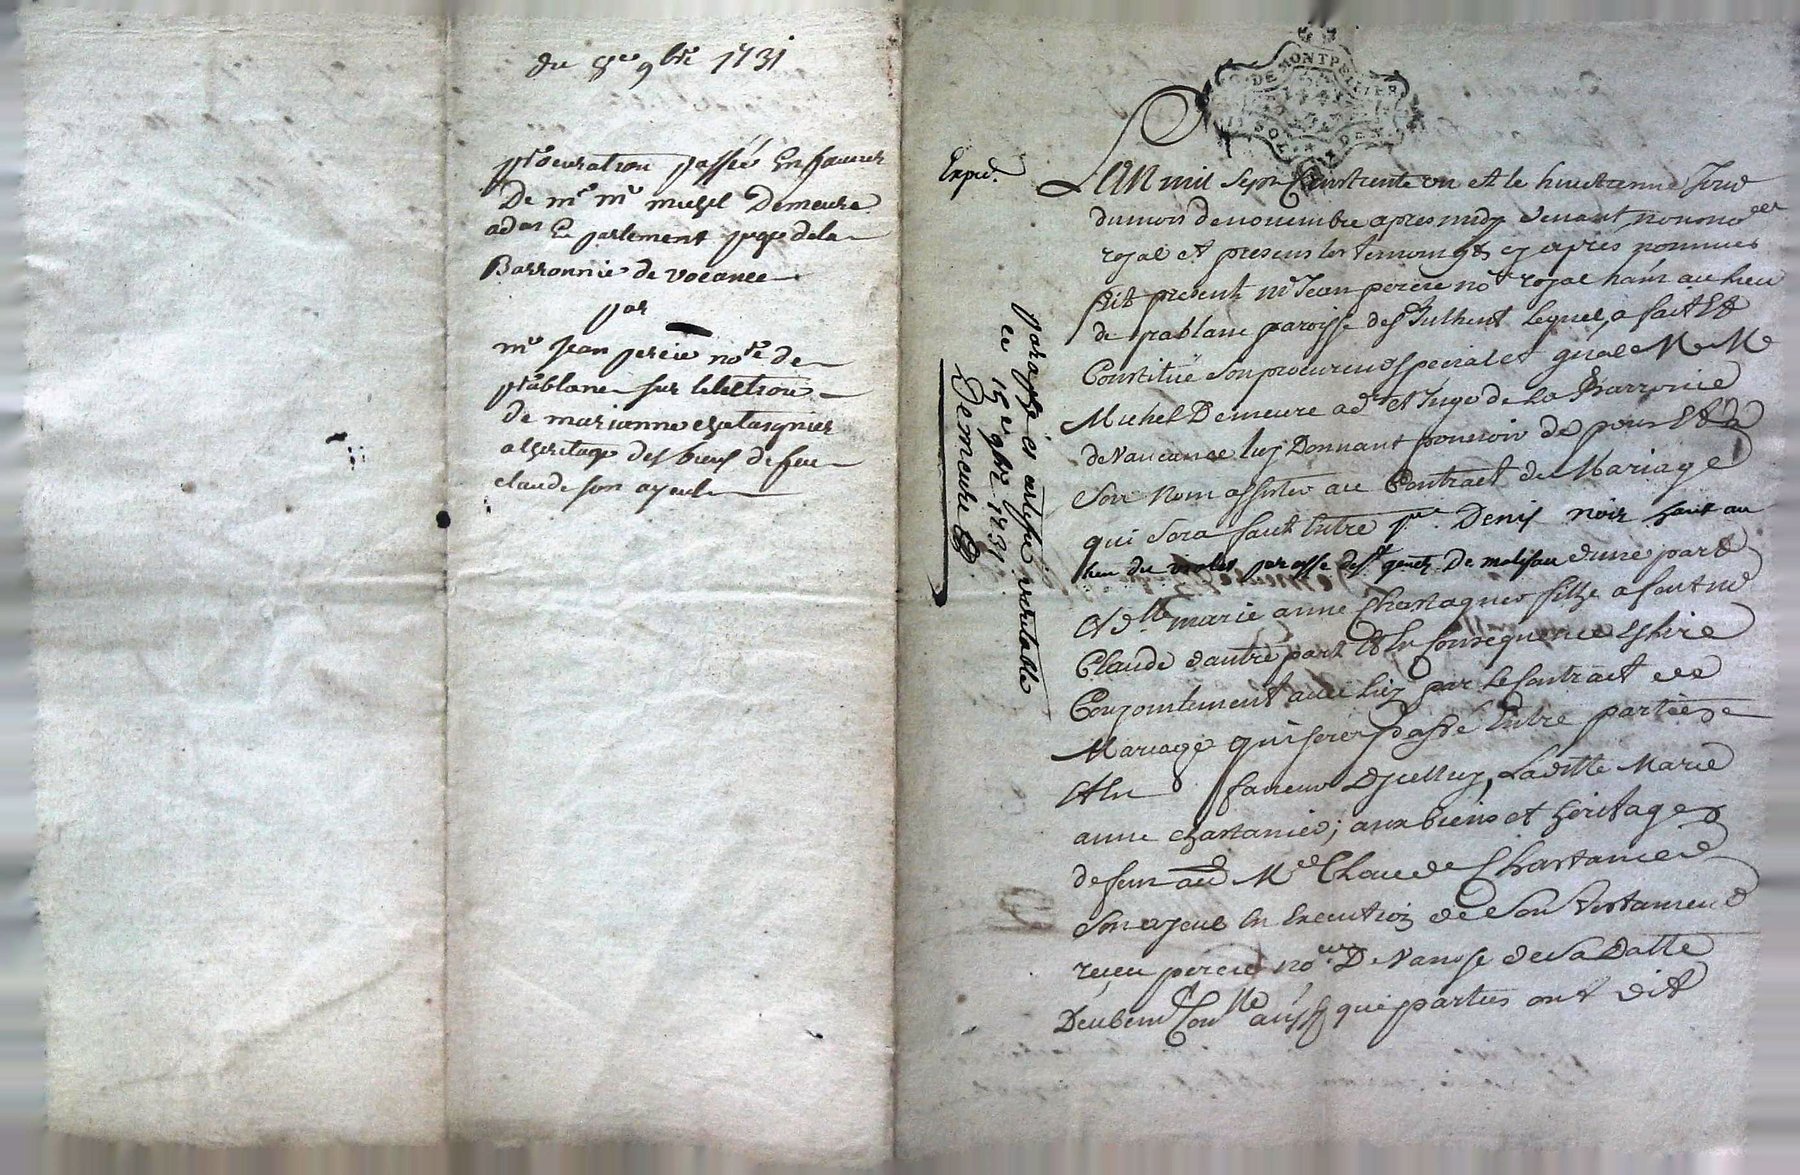 du 8e 9bre 1731
procuration passée En faveur
De mr me michel Demeure
adat En parlement juge de la
Barronnie de vocance
par
me jean percie nore de
prablanc sur lelection
de marianne chataignier
a lheritage des biens de feu
claude son ayeul
DE MONTPELLIER
SOL
Exped.
L'AN mil Sept Cens trente un et le huictieme Jour
du mois de novembre apres midy devant nous nore
royal et presens les temoings cy apres nommés
fut present me Jean percie nore royal hant au lieu
de prablanc paroisse de St Julhent lequel, a fait Et
Constitué Son procureur special et gnal Me Me
Michel Demeure adt et Juge de La Barronie
de Vaucance luy Donnant pouvoir de pour Et a
Son Nom assister au Contract de Mariage
qui Sera fait Entre sr Denis noir hant au
lieu du parosse de St genest De malifau d'une part
Et dlle marie anne Chastagner fille a feu me
Claude dautre part Et En Consequence Eslire
Conjointement avec luy par le Contract de
Mariage qui sera passé Entre parties
Et En faveur D'jcelluy, Ladite Marie
anne chastanier; aux biens et heritages
de feu Me Claude Chastanier
Son ayeul En Execution de Son testament
reçeu percie nore De Vanosse de Sa Datte
Deubemt Conlle aussy que parties ont dit
Paraphé es artesfié veritable
ce 15e 9bre 1731
Demeure